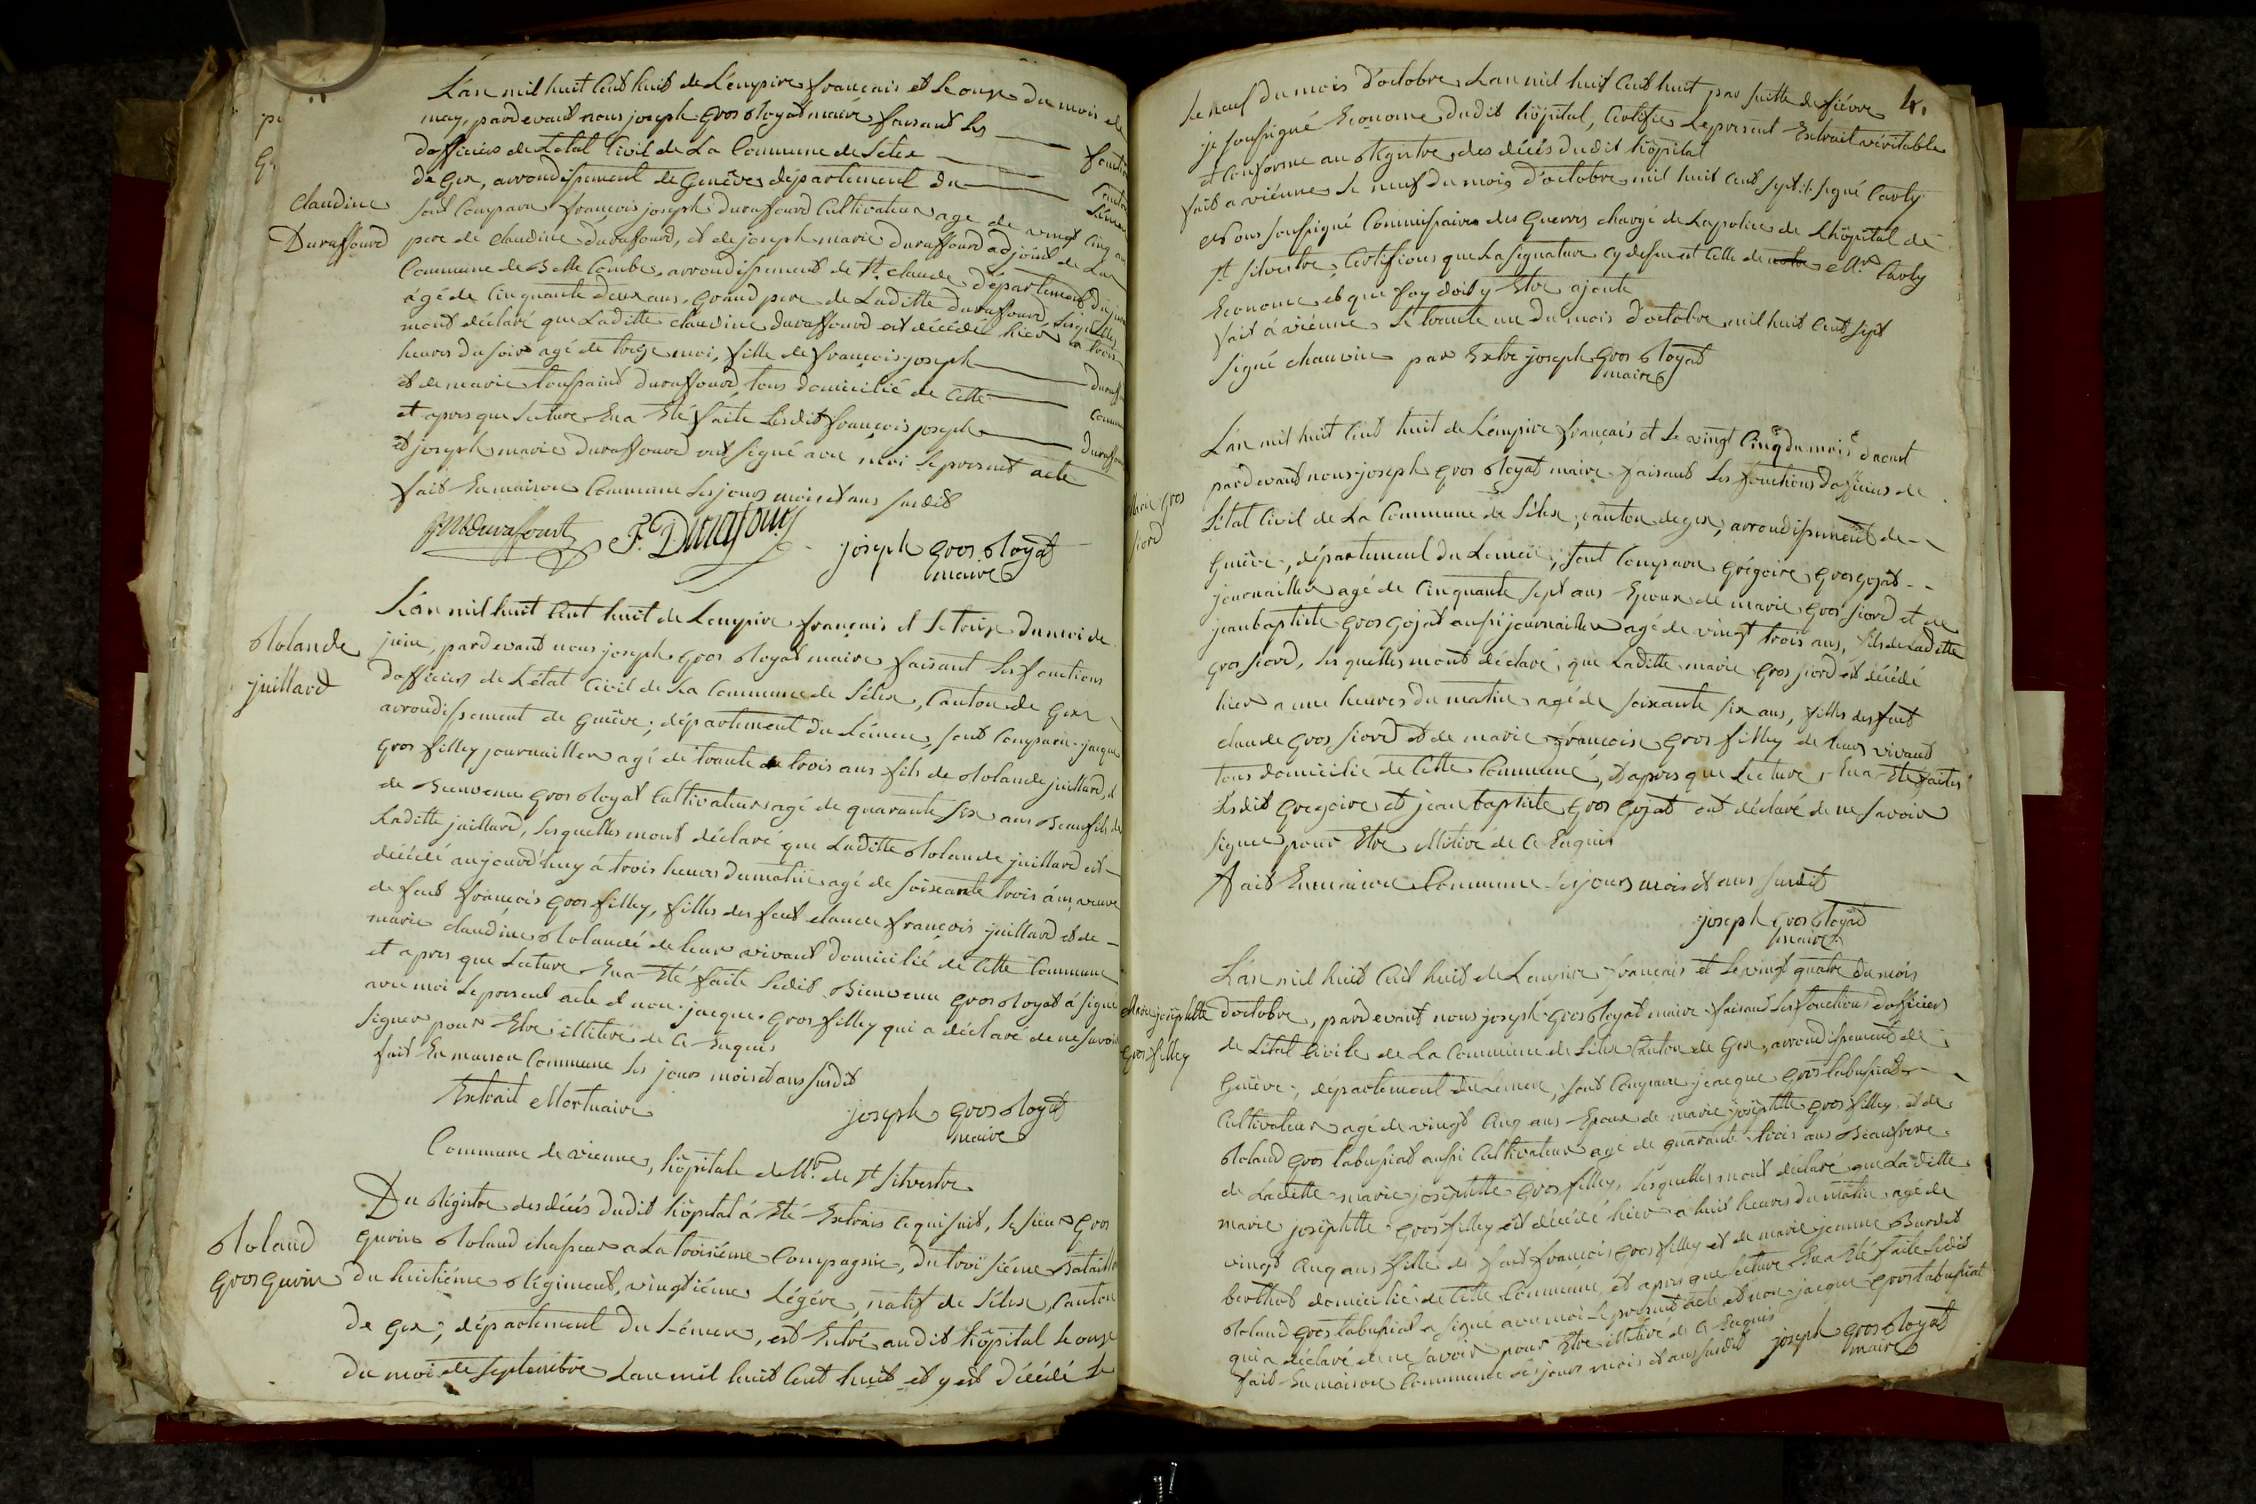 Claudine
Duraffourd
L'an mil huit Cent huit de L'empire français et Le onze du mois de
may, pardevant nous joseph Gros Royat maire faisant Les fonctions
dofficier de Letat Civil de La Commune de Lelex Canton
de Gex, arrondissement de Genève département du Léman
sont Comparu françois joseph duraffourd Cultivateur age de vingt Cinq ans
pere de claudine duraffourd, et de joseph marie duraffourd adjoint de La
Commune de Belle Combe, arrondissement de St. claude département du jura
âgé de Cinquante deux ans, Grand pere de Laditte duraffourd Lesquelles
mont déclaré que Laditte claudine duraffourd est décédé hier a trois
heures du soir agé de treize moi, fille de françois joseph duraffourd
et de marie toussaint duraffourd tous domicilié de Cette Commune
et apres que Lecture En a Eté faite Lesdit françois joseph duraffourd
et joseph marie duraffourd ont signé avec moi Le present acte
fait En maison Commune Les jours mois et ans susdit
JM Duraffourd F. J. Durafourg joseph Gros Royat
maire
Rolande
juillard
L'an mil huit Cent huit de L'empire français et Le treize du moi de
juin, pardevant nous joseph Gros Royat maire faisant Les fonctions
dofficier de L'état Civil de La Commune de Lélex, Canton de Gex
arrondissement de Genève, département du Léman, sont Comparu jacque
Gros filley journaillier agé de trante trois ans fils de Rolande juillard, et
de Bienvenu Gros Royat Cultivateur agé de quarante six ans Beaufils de
Laditte juillard, Lesquelles mont déclaré que Laditte Rolande juillard est
décédé aujourd'huy á trois heures du matin agé de soixante trois ans, veuve
de feut françois Gros filley, filles des feut claude françois juillard et de
marie claudine Rolande de leur vivant domicilié de Cette Commune
et apres que Lecture En a Eté faite Ledit Bienvenu Gros Royat á signé
avec moi Le present acte et non jacque Gros filley qui a déclaré de ne savoir
signer pour Etre illiteré de Ce Enquis
fait En maison Commune Les jours mois et ans susdit
joseph Gros Royat
maire
Extrait Mortuaire
Commune de vienne, hôpitale de Mr. de St Silvestre
Roland
Gros Gurin
Du Régistre des décés dudit hôpital á Eté Extrais Ce qui suit, Le sieur Gros
Gurin Roland chasseur a La troisiéme Compagnie, du troisiéme Bataillon
du huitiéme Régiment, vingtiéme Légére, natif de Lélex, Canton
de Gex, département du Léman, est Entré audit hôpital Le onze
du moi de septembre Lan mil huit Cent huit et y est décédé Le
4.
Le neuf du mois d'octobre Lan mil huit Cent huit par suitte de fiévre
je soussigné Econome dudit hôpital, Certifie Le present Extrait véritable
et Conforme au Régistre des décés dudit hôpital
fait a viénne Le neuf du mois d'octobre mil huit Cent sept signé Carly
Nous soussigné Commissaire des Guerres chargé de La police de L'hôpital de
St Silvestre, Certifions que La signature cy dessus est Celle de Mr. Carly
Econome, et que foy doit y Etre ajouté
fait á viénne Le trente un du mois d'octobre mil huit Cent sept
signé chauvin par Extre joseph Gros Royat
maire
Marie Gros
jiord
L'an mil huit Cent huit de L'empire français et Le vingt Cinq du mois daout
pardevant nous joseph Gros Royat maire faisant Les fonctions dofficier de
L'état Civil de La Commune de Lélex, Canton de gex, arrondissement de
Genêve, département du Leman, sont Comparu Grégoire Gros gojat
journaillier agé de Cinquante sept ans Epoux de marie Gros jiord et de
jean baptiste Gros gojat aussi journaillier agé de vingt trois ans, fils de Laditte
Gros jiord, Lesquelles mont déclaré, que Laditte marie Gros jiord est décédé
hier a une heures du matin agé de soixante six ans, filles des feut
claude Gros jiord et de marie francoise Gros filley de leur vivant
tous domicilié de Cette Commune, et apres que Lecture En a Eté faites
Lesdit Gregoire et jean baptiste Gros Gojat ont déclaré de ne savoir
signer pour Etre illitiré de Ce Enquis
fait En maison Commune Les jours mois et ans susdit
joseph Gros Royat
maire
Marie joséphtte
Gros filley
L'an mil huit Cent huit de Lempire français et Le vingt quatre du mois
doctobre, pardevant nous joseph Gros Royat maire faisant Les fonctions dofficier
de Létat Civile de La Commune de Lélex Canton de Gex, arrondissement de
Genêve, département du Léman, sont Comparu jacque Gros tabussiat
Cultivateur agé de vingt Cinq ans Epoux de marie joséphtte Gros filley, et de
Roland Gros tabussiat aussi Cultivateur agé de quarante trois ans Beaufrere
de Laditte marie joséphtte Gros filley, Lesquelles mont déclaré que Laditte
marie joséphtte Gros filley est décédé hier a huit heures du matin agé de
vingt Cinq ans fille de feut françois Gros filley et de marie jeanne Burdet
berthet domicilié de Cette Commune, et apres que Lecture En a Eté faite Ledit
Roland Gros tabussiat a signé avec moi Le present acte, et non jacque Gros tabussiat
qui a déclaré de ne savoir pour Etre illitéré de Ce Enquis
fait En maison Commune Les jours mois et ans susdit joseph Gros Royat
maire